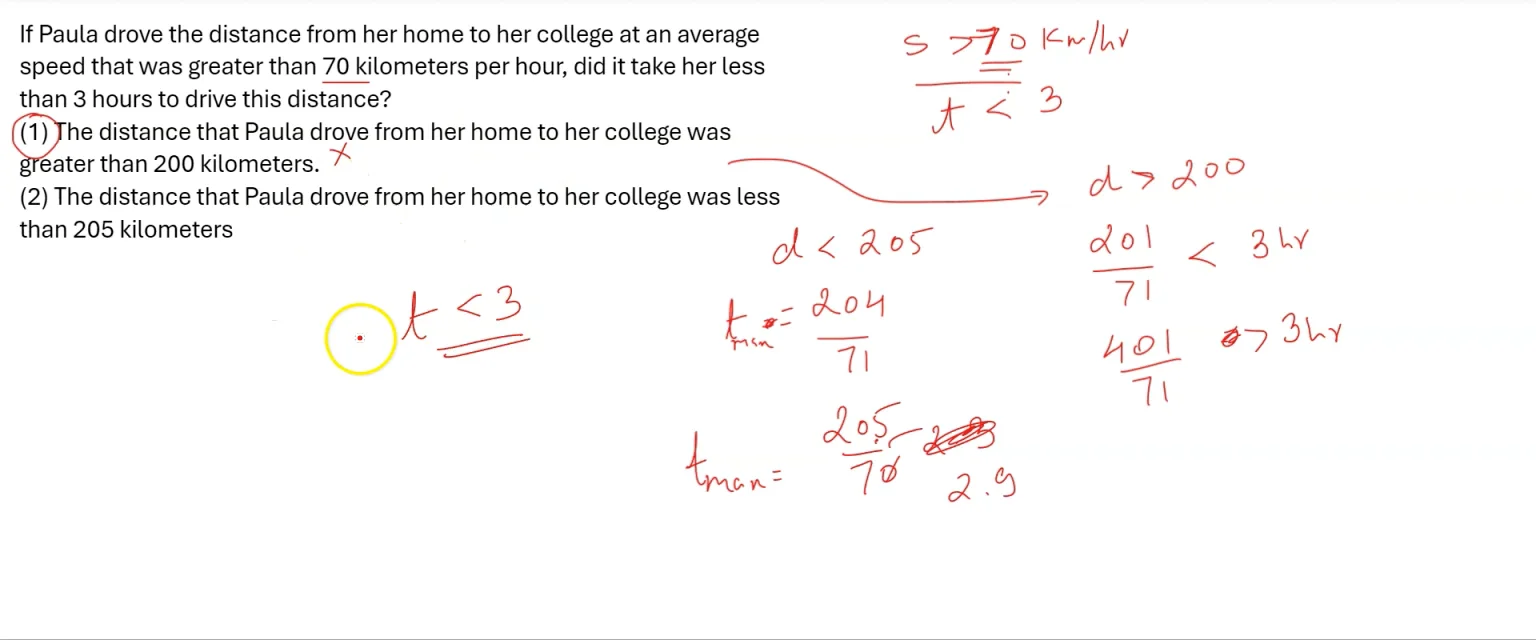 If Paula drove the distance from her home to her college at an average
speed that was greater than 70 kilometers per hour, did it take her less
than 3 hours to drive this distance?
(1) The distance that Paula drove from her home to her college was
greater than 200 kilometers. x
(2) The distance that Paula drove from her home to her college was less
than 205 kilometers
s >70 Km/hr
t < 3
d > 200
201/71 < 3 hr
401/71 > 3 hr
d < 205
t = 204/71
205/70
2.9
t < 3